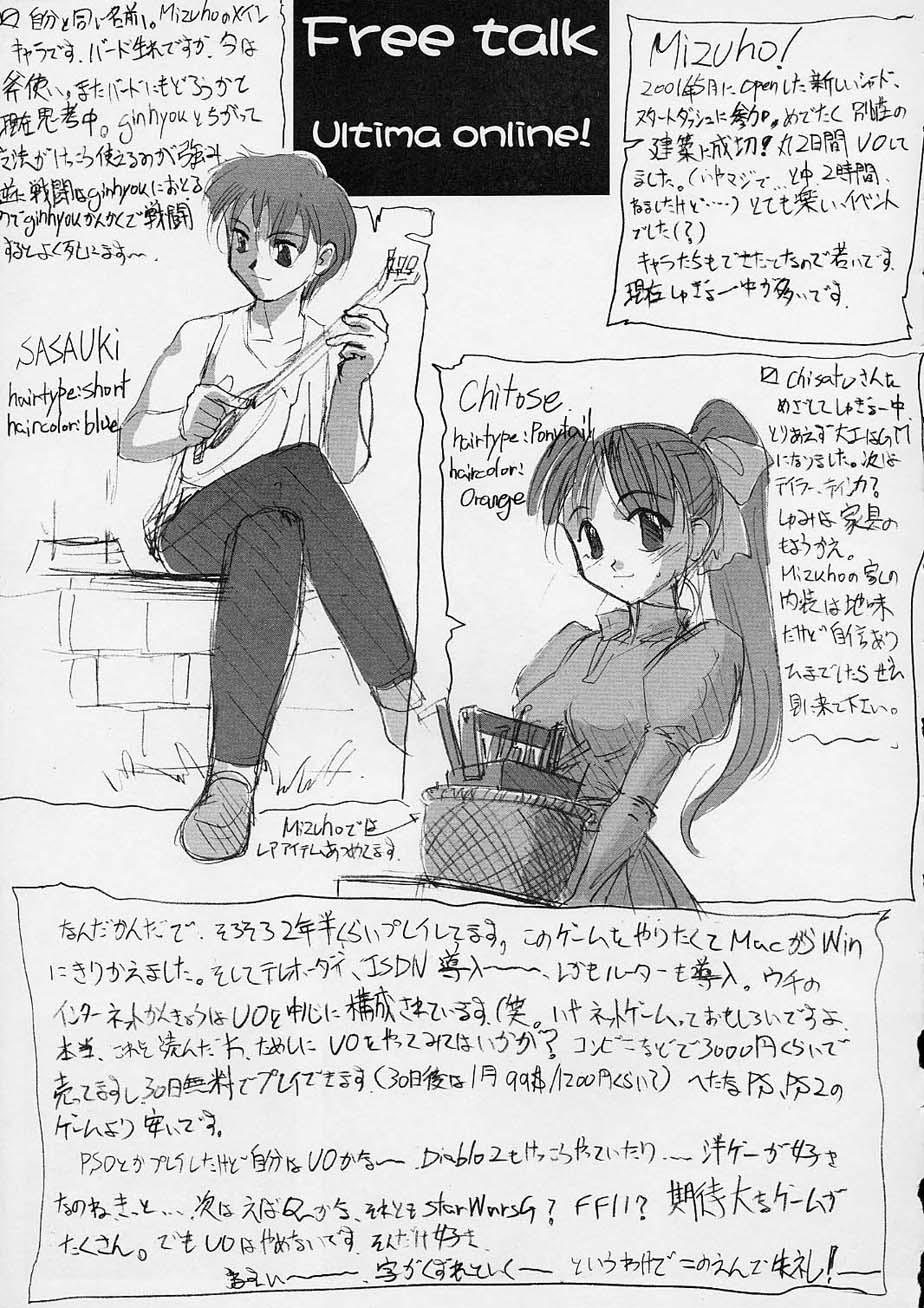 Free talk
Ultima online!
☑ 自分と同じ名前。Mizuhoのメイン
キャラです。バード生れですが、今は
斧使い。またバードにもどろうかて
現在思考中。ginhyouとちがって
魔法がけっこう使えるのが強み
逆に戦闘はginhyouにおとる
のでginhyouかんかくで戦闘
するとよく死にます〜。
SASAUKi
hairtype:short
haircolor:blue
Mizuho!
2001年5月にOpenした新しいシャド、
スタートダッシュに参加。めでたく別荘の
建築に成功!丸2日間UOして
ました。(いやマジで…と中2時間、
ねましたけど……)とても楽しいイベント
でした(?)
キャラたちもできたてなので若いです。
現在しゅぎょー中が多いです。
Chitose
hairtype:Ponytail
haircolor:
Orange
☑ Chisatoさんを
めざしてしゅぎょー中
とりあえず大工はGM
になりました。次は
テイラー、ティンカ?
しゅみは家具の
もようがえ。
Mizuhoの家の
内装は地味
だけど自信あり
ひまでしたらぜひ
見に来て下さい。
Mizuhoでは
レアアイテムあつめてます。
なんだかんだで、そろそろ2年半くらいプレイしてます。このゲームをやりたくてMacからWin
にきりかえました。そしてテレホーダイ、ISDN導入〜〜、しかもルーターも導入。ウチの
インターネットかんきょうはUOを中心に構成されています。(笑。いやネットゲームっておもしろいですよ、
本当、これを読んだ方、ためしにUOをやってみてはいかが?コンビニなどで3000円くらいで
売ってますし30日無料でプレイできます(30日後は1月99$/1200円くらいで)へたなPS、PS2の
ゲームより安いです。
PSOとかプレイしたけど自分はUOかな〜 Diablo2もけっこうやっていたり…洋ゲーが好き
なのねきっと…、次はえばQuかな、それともstarWarsG?FF11?期待大なゲームが
たくさん。でもUOはやめないです。そんだけ好き。
〜、字がくずれていく〜 というわけでこのへんで失礼!